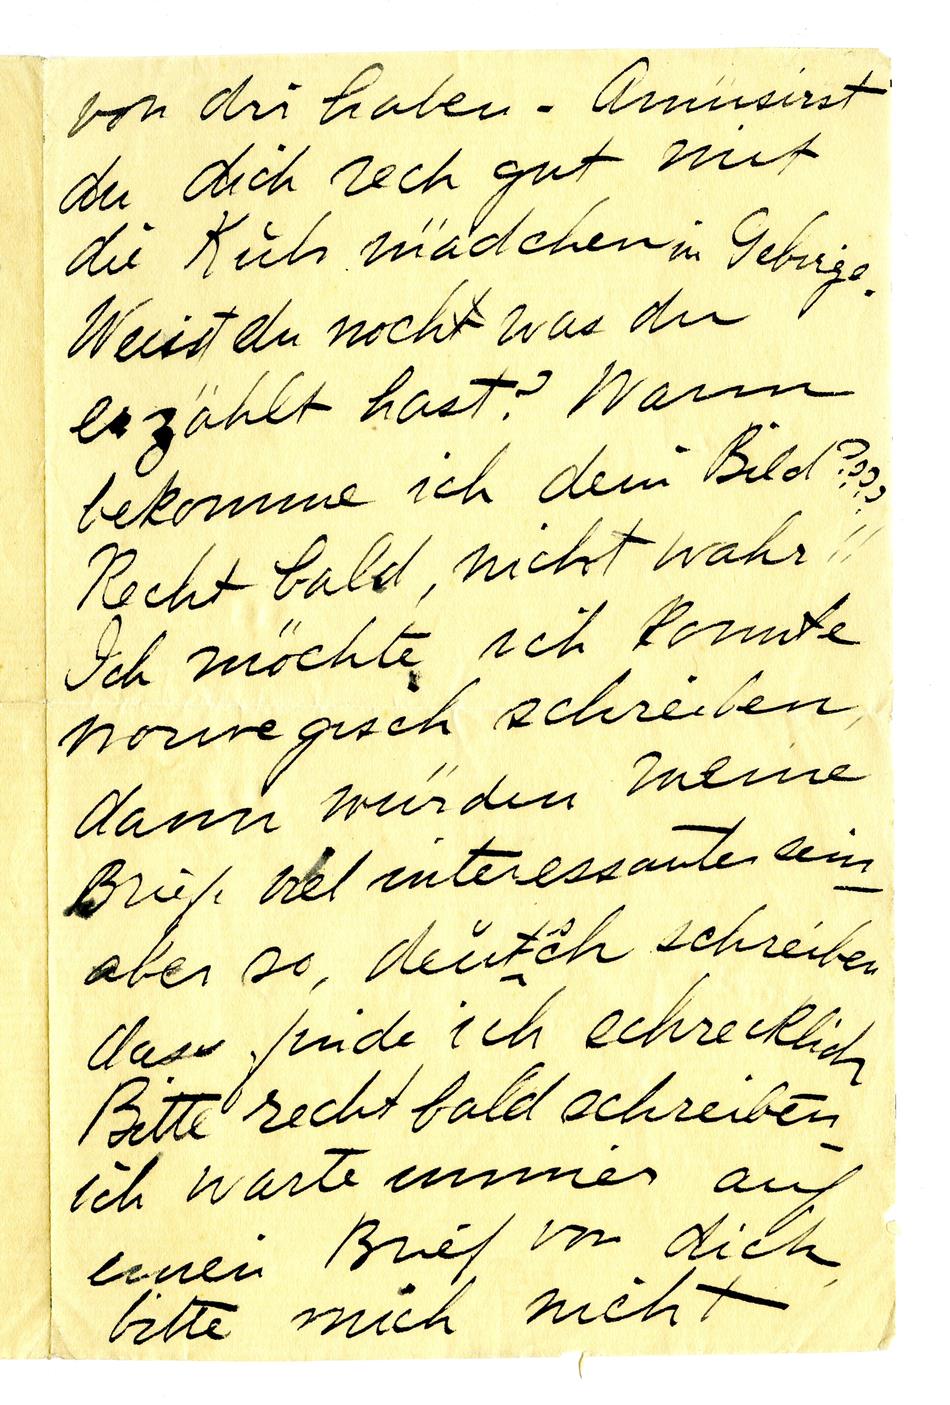 von dir haben - Amüsirst
du dich rech gut mit
die Küh mädchen in Gebirge.
Weisst du noch was du
erzählt hast? Wann
bekomme ich dein Bild????
Recht bald, nicht wahr!!
Ich möchte, ich konnte
norwegisch schreiben,
dann würden meine
Briefe viel interessanter sein
aber so, deutsch schreiben
das finde ich schrecklich
Bitte recht bald schreiben
ich warte immer auf
einen Brief von dich,
bitte mich nicht